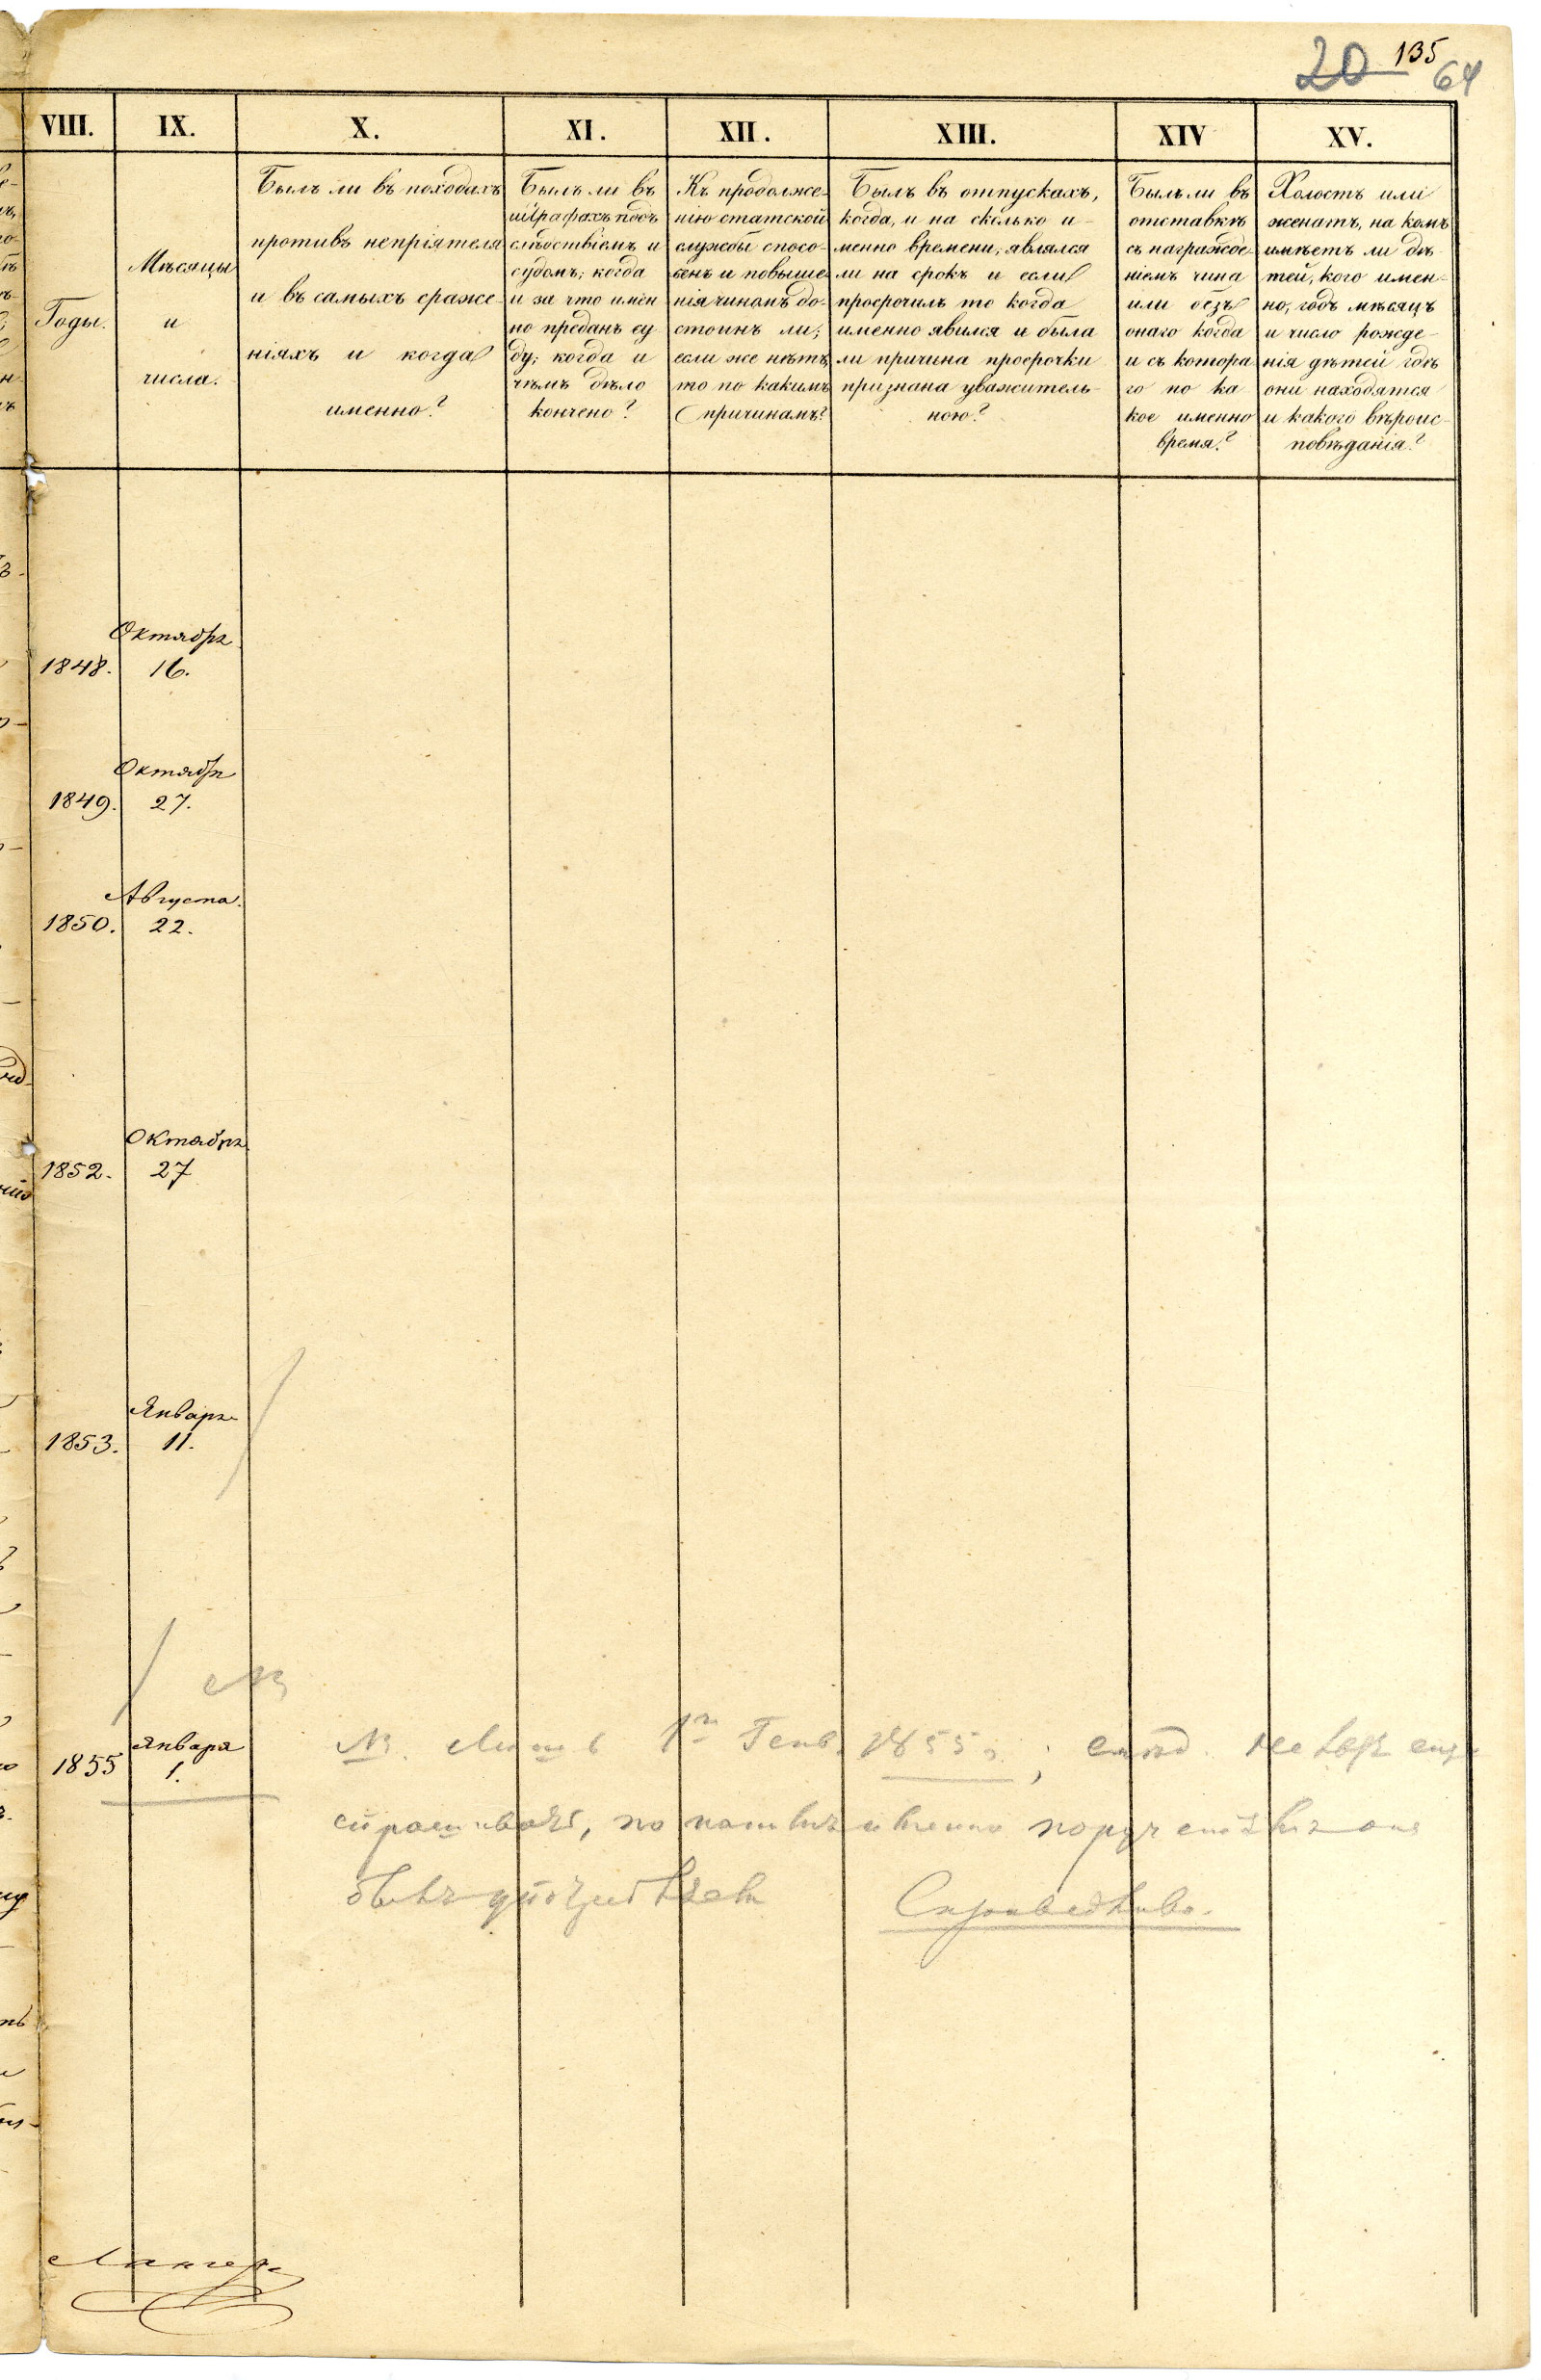 20 135
64
VIII. IX. X. XI. XII. XIII. XIV XV.
Годы.
Мѣсяцы
и
числа.
Былъ ли въ походахъ
противъ непріятеля
и въ самыхъ сраже-
ніяхъ и когда
именно?
Былъ ли въ
штрафахъ подъ
слѣдствіемъ и
судомъ; когда
и за что имен
но преданъ су
ду; когда и
чѣмъ дѣло
кончено?
Къ продолже-
нію статской
службы спосо-
бенъ и повыше
нія чиномъ до-
стоинъ ли;
если же нѣтъ,
то по какимъ
причинамъ?
Былъ въ отпускахъ,
когда, и на сколько и-
менно времени; являлся
ли на срокъ и если
просрочилъ то когда
именно явился и была
ли причина просрочки
признана уважитель-
ною?
Былъ ли въ
отставкѣ
съ награжде-
ніемъ чина
или безъ
онаго когда
и съ котора
го по ка
кое именно
время?
Холостъ или
женатъ, на комъ
имѣетъ ли дѣ-
тей, кого имен-
но, годъ мѣсяцъ
и число рожде-
нія дѣтей гдѣ
они находятся
и какого вѣроис-
повѣданія?
Октября
1848. 16.
Октября
1849. 27.
Августа.
1850. 22.
Октября
1852. 27
Января
1853. 11.
Января
1855 1.
1го Генв. 1855 г.;
Справедливо.